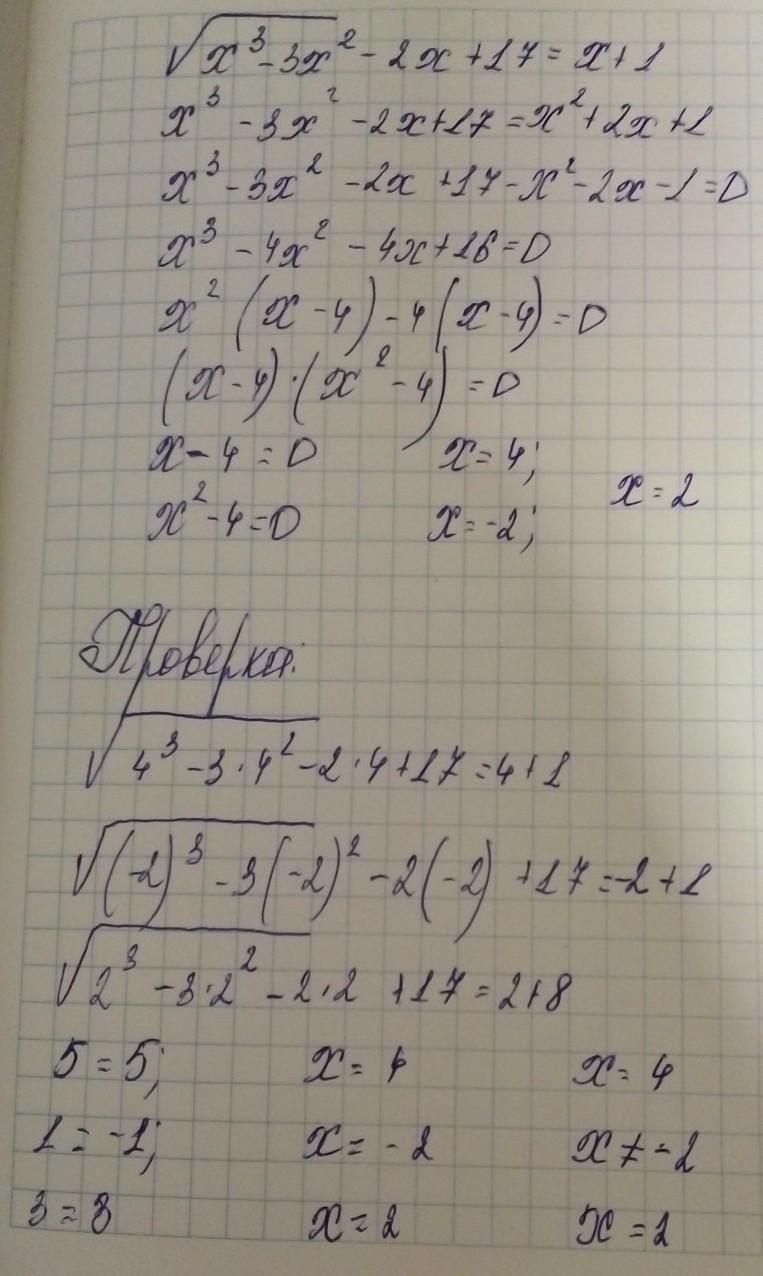 √x³-3x² - 2x + 17 = x + 1
x³ - 3x² - 2x + 17 = x² + 2x + 1
x³ - 3x² - 2x + 17 - x² - 2x - 1 = 0
x³ - 4x² - 4x + 16 = 0
x² (x - 4) - 4 (x - 4) = 0
(x - 4) · (x² - 4) = 0
x - 4 = 0 x = 4;
x² - 4 = 0 x = -2; x = 2
Проверка:
√4³ - 3 · 4² - 2 · 4 + 17 = 4 + 1
√(-2)³ - 3(-2)² - 2(-2) + 17 = -2 + 1
√2³ - 3 · 2² - 2 · 2 + 17 = 2 + 8
5 = 5; x = 4 x = 4
1 = -1; x = -2 x ≠ -2
3 = 3 x = 2 x = 2